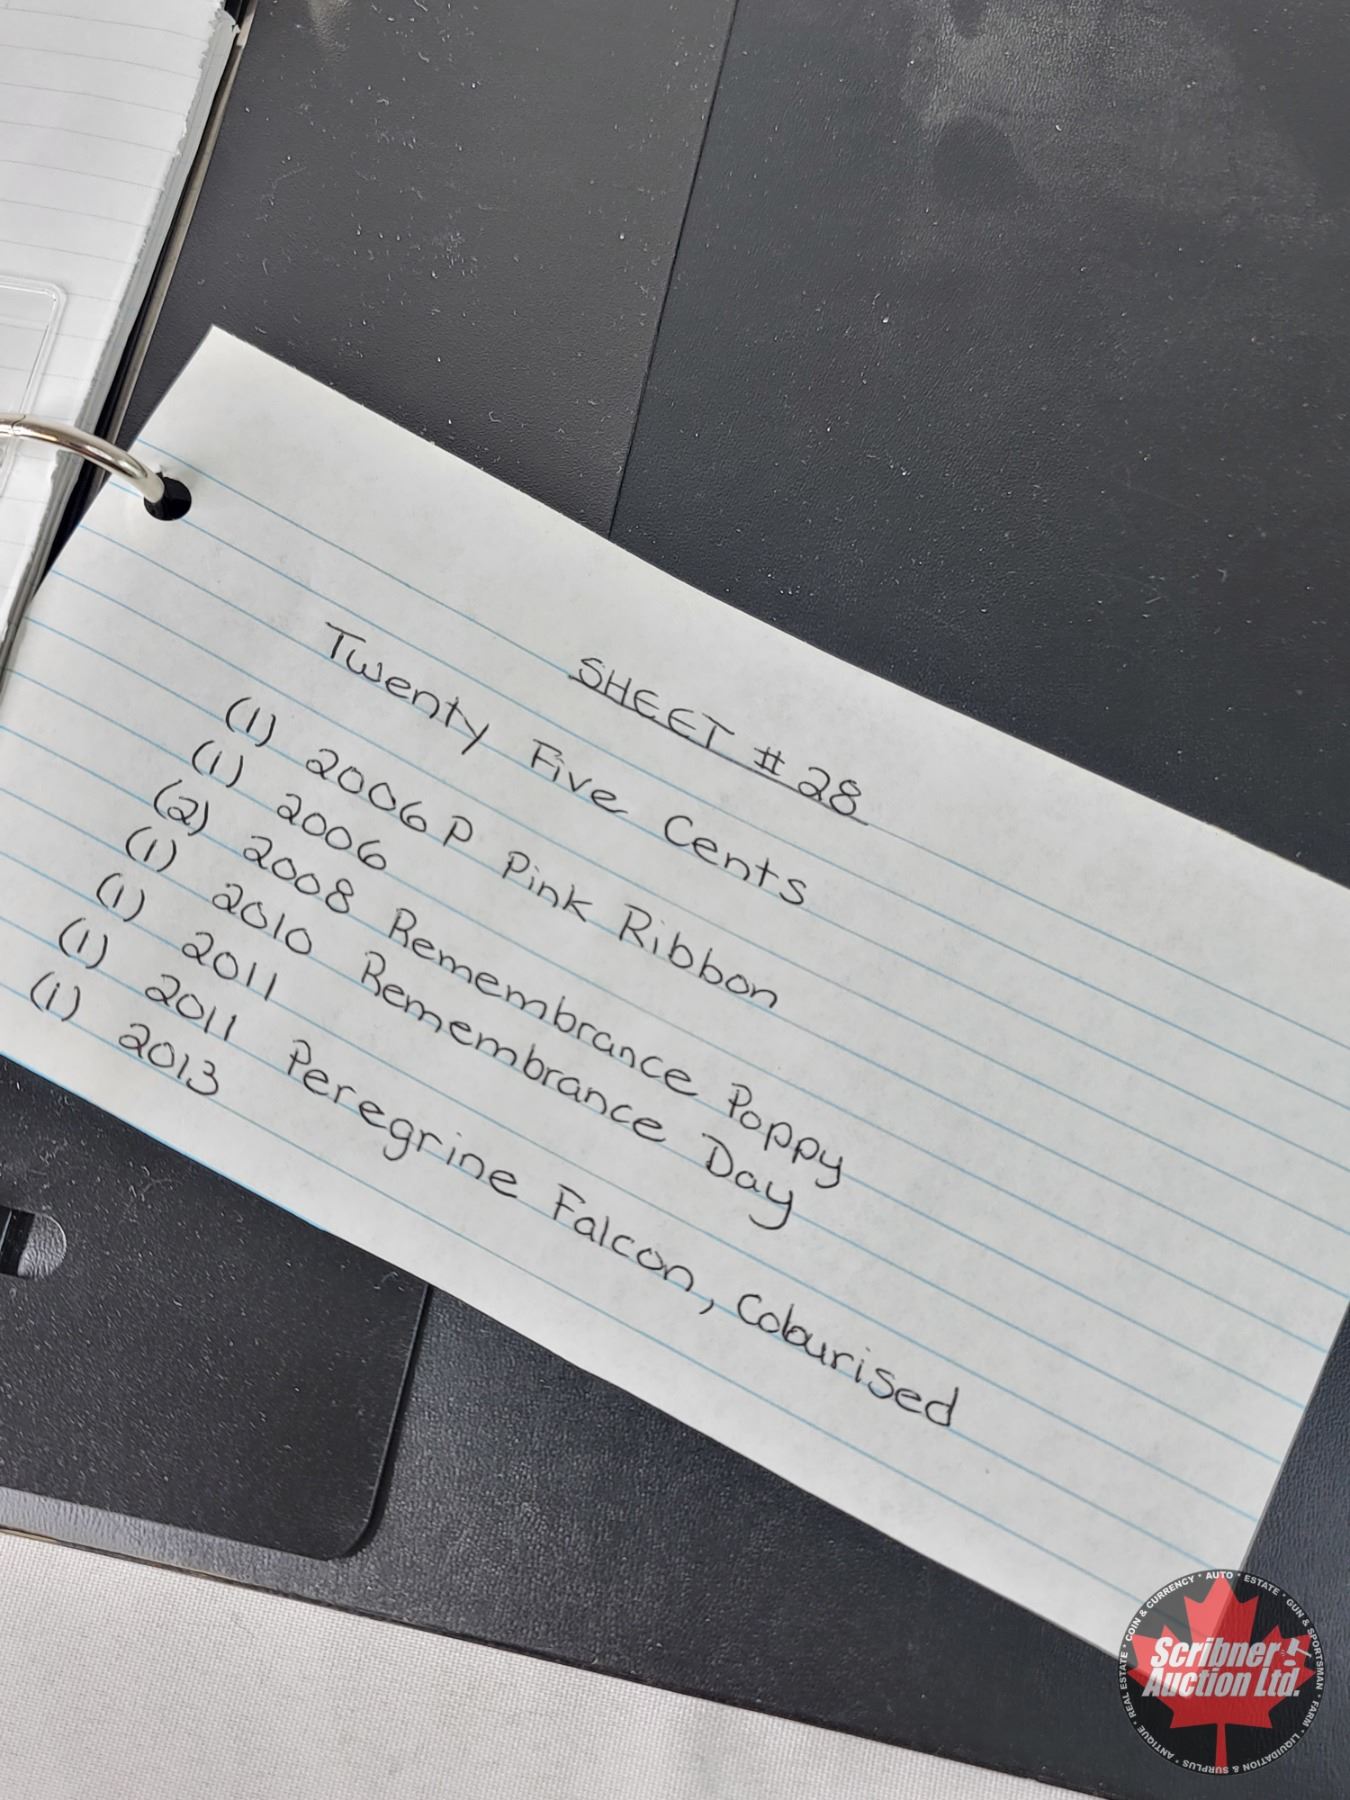 SHEET # 28
Twenty Five Cents
(1) 2006 P Pink Ribbon
(1) 2006
(2) 2008 Remembrance Poppy
(1) 2010 Remembrance Day
(1) 2011
(1) 2011 Peregrine Falcon, Colourised
(1) 2013
COIN & CURRENCY • AUTO • ESTATE • GUN & SPORTSMAN • FARM • LIQUIDATION & SURPLUS • ANTIQUE • REAL ESTATE •
Scribner
Auction Ltd.